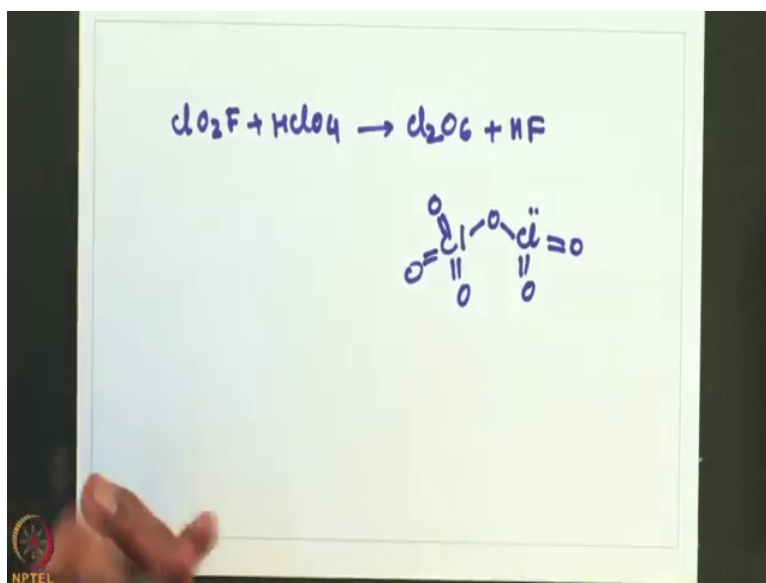 ClO2F + HClO4 → Cl2O6 + HF
O O Cl̈ = O
O = Cl
|| ||
O O
NPTEL